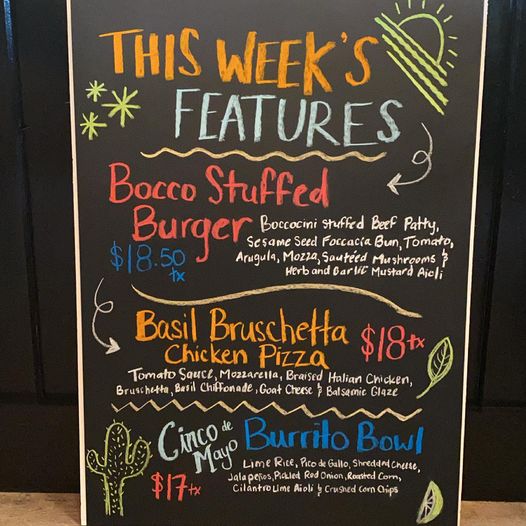 THIS WEEK'S
FEATURES
Bocco Stuffed
Burger
$18.50
tx
Boccocini Stuffed Beef Patty,
Sesame Seed Foccacia Bun, Tomato,
Arugula, Mozza, Sautéed Mushrooms &
Herb and Garlic Mustard Aioli
Basil Bruschetta
Chicken Pizza
$18tx
Tomato Sauce, Mozzarella, Braised Italian Chicken,
Bruschetta, Basil Chiffonade, Goat Cheese & Balsamic Glaze
Cinco de
Mayo
Burrito Bowl
$17tx
Lime Rice, Pico de Gallo, Shredded Cheese,
Jalapeños, Pickled Red Onion, Roasted Corn,
Cilantro Lime Aioli & Crushed Corn Chips